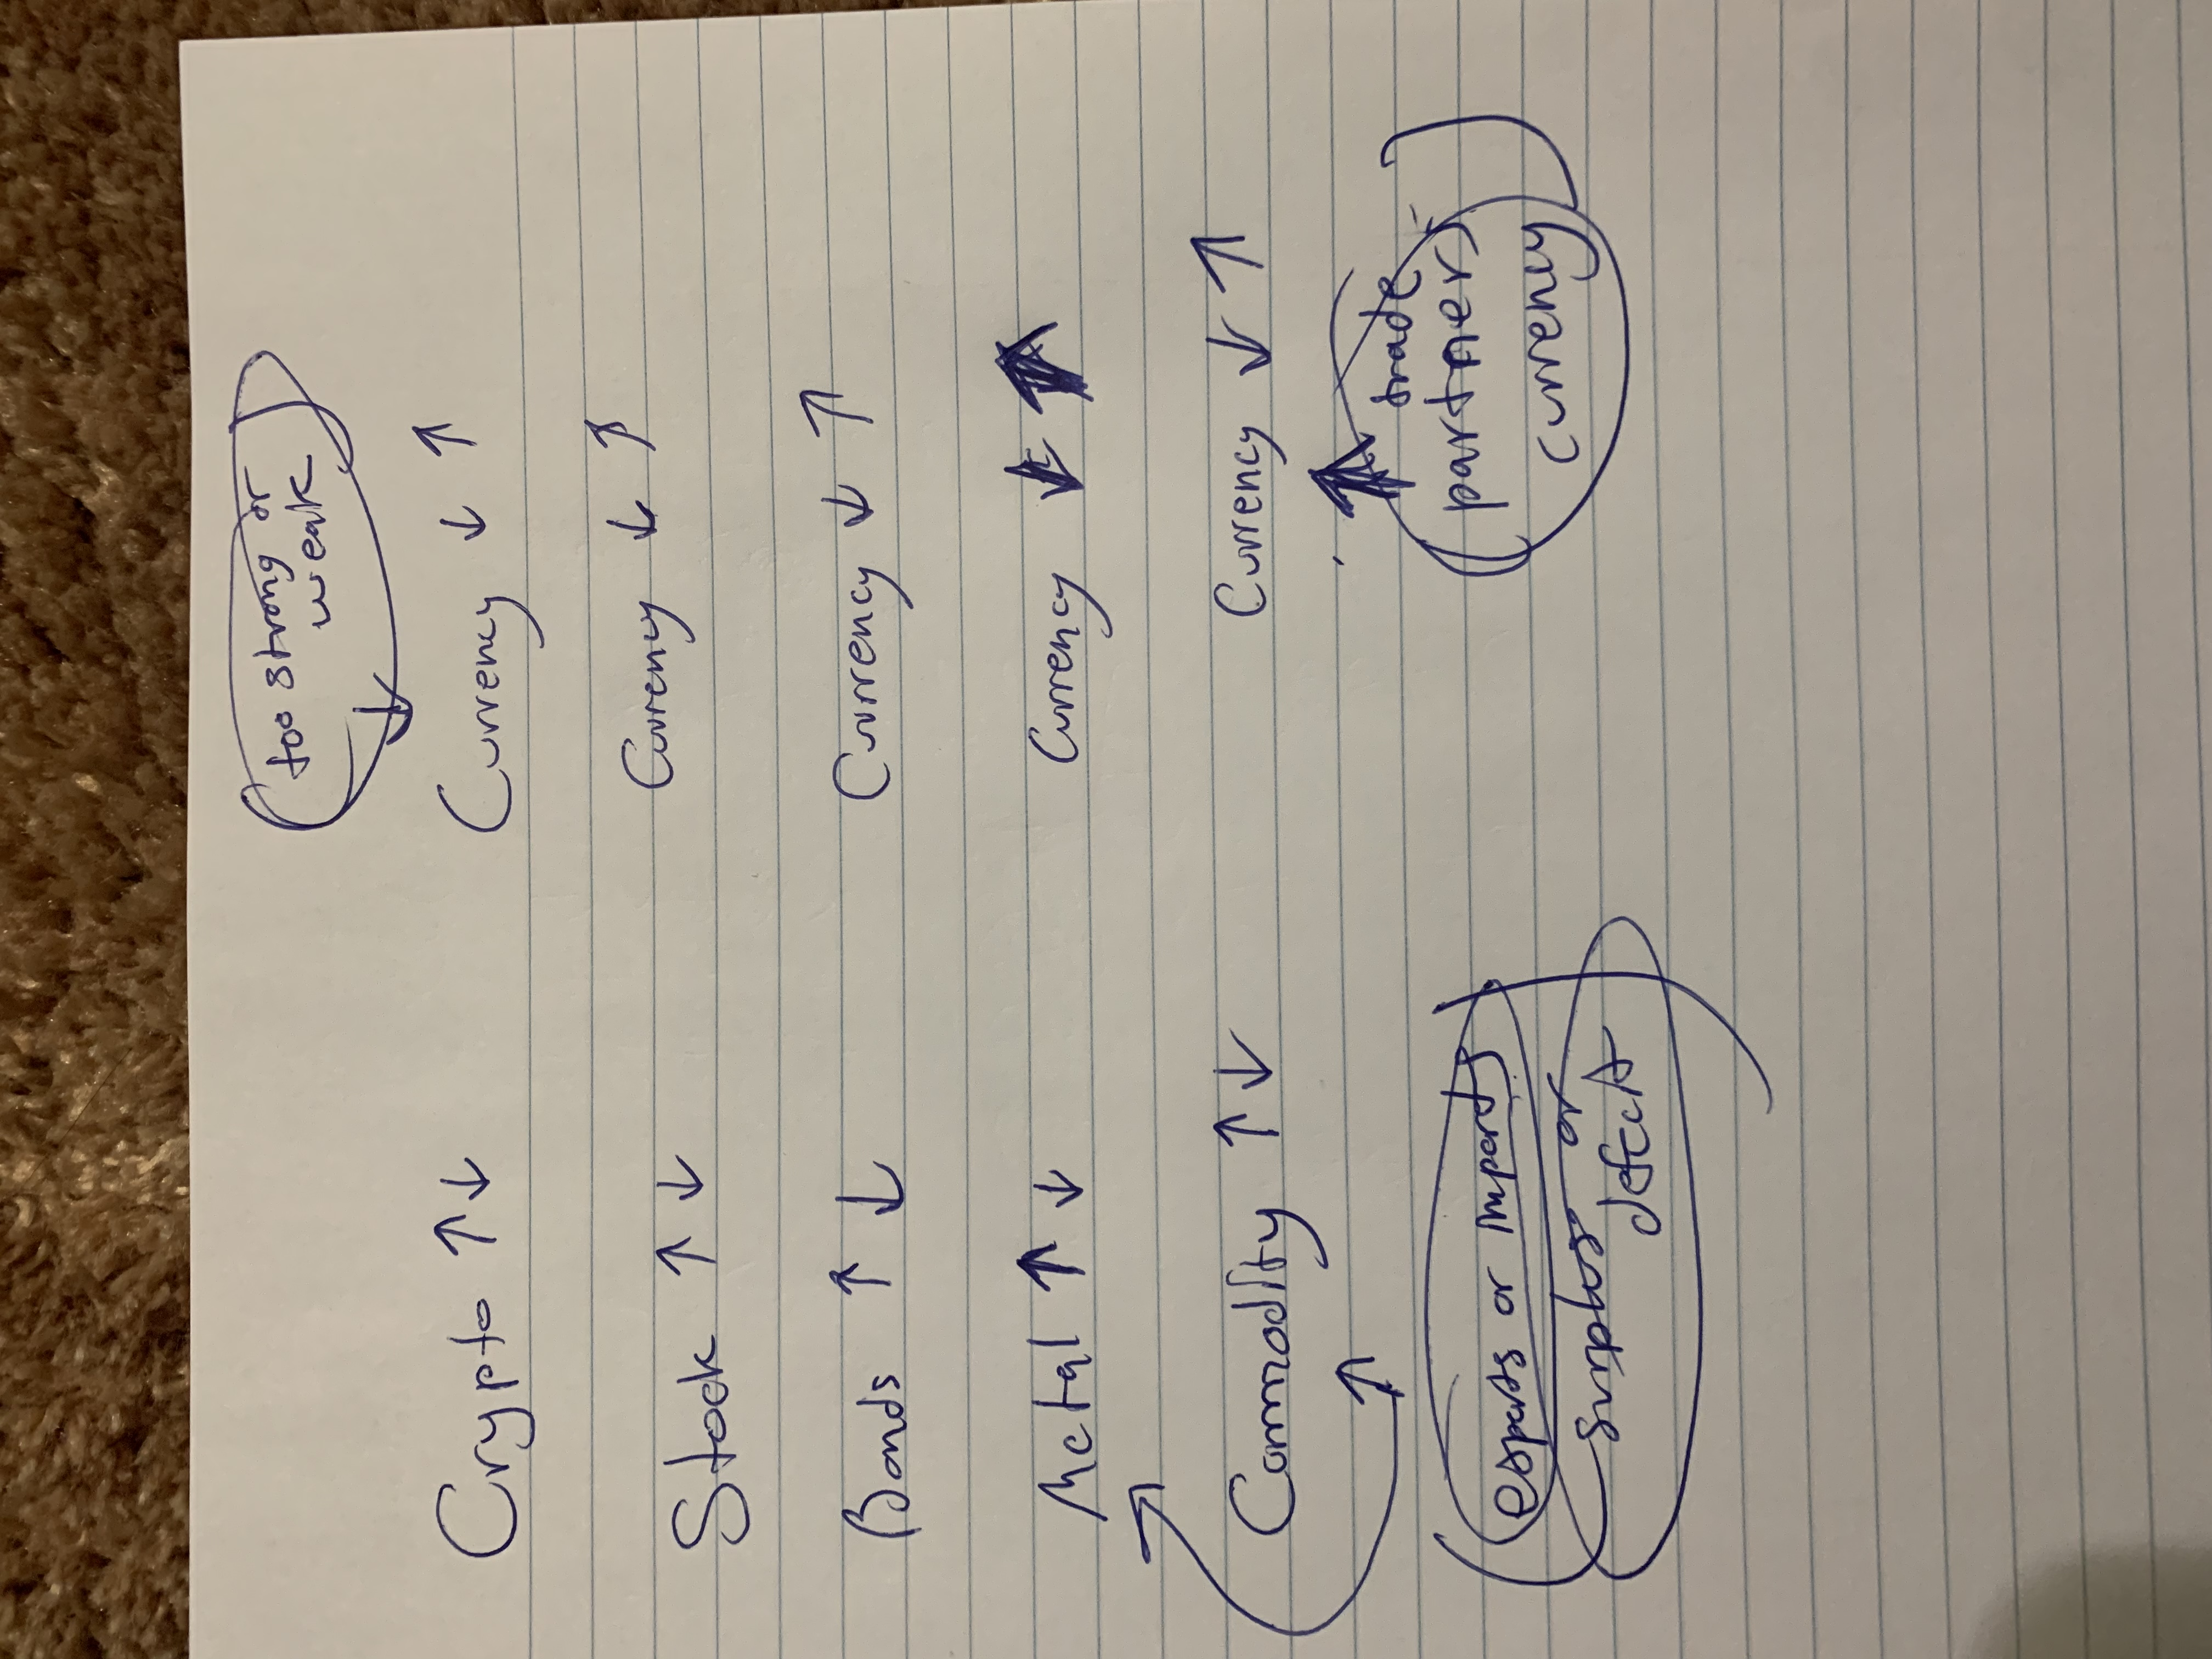 too strong or
weak
Crypto ↑ ↓ Currency ↓ ↑
Stock ↑ ↓ Currency ↓ ↑
Bonds ↑ ↓ Currency ↓ ↑
Metal ↑ ↓ Currency ↓ ↑
Commodity ↑ ↓ Currency ↓ ↑
trade
partners
currency
esports or imports
surplus or